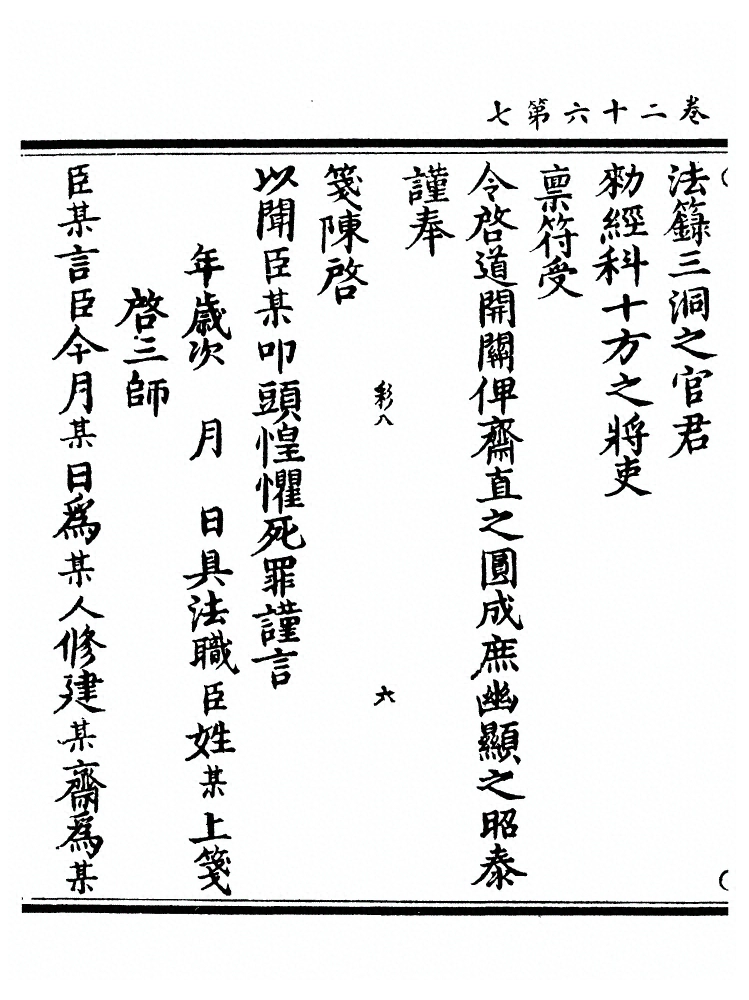 卷二十六第七
法籙三洞之官君
勑經科十方之將吏
禀符受
令啓道開關俾齋直之圓成庶幽顯之昭泰
謹奉
箋陳啓
彩八 六
以聞臣某叩頭惶懼死罪謹言
年歲次 月 日具法職臣姓某上箋
啓三師
臣某言臣今月某日爲某人修建某齋爲某